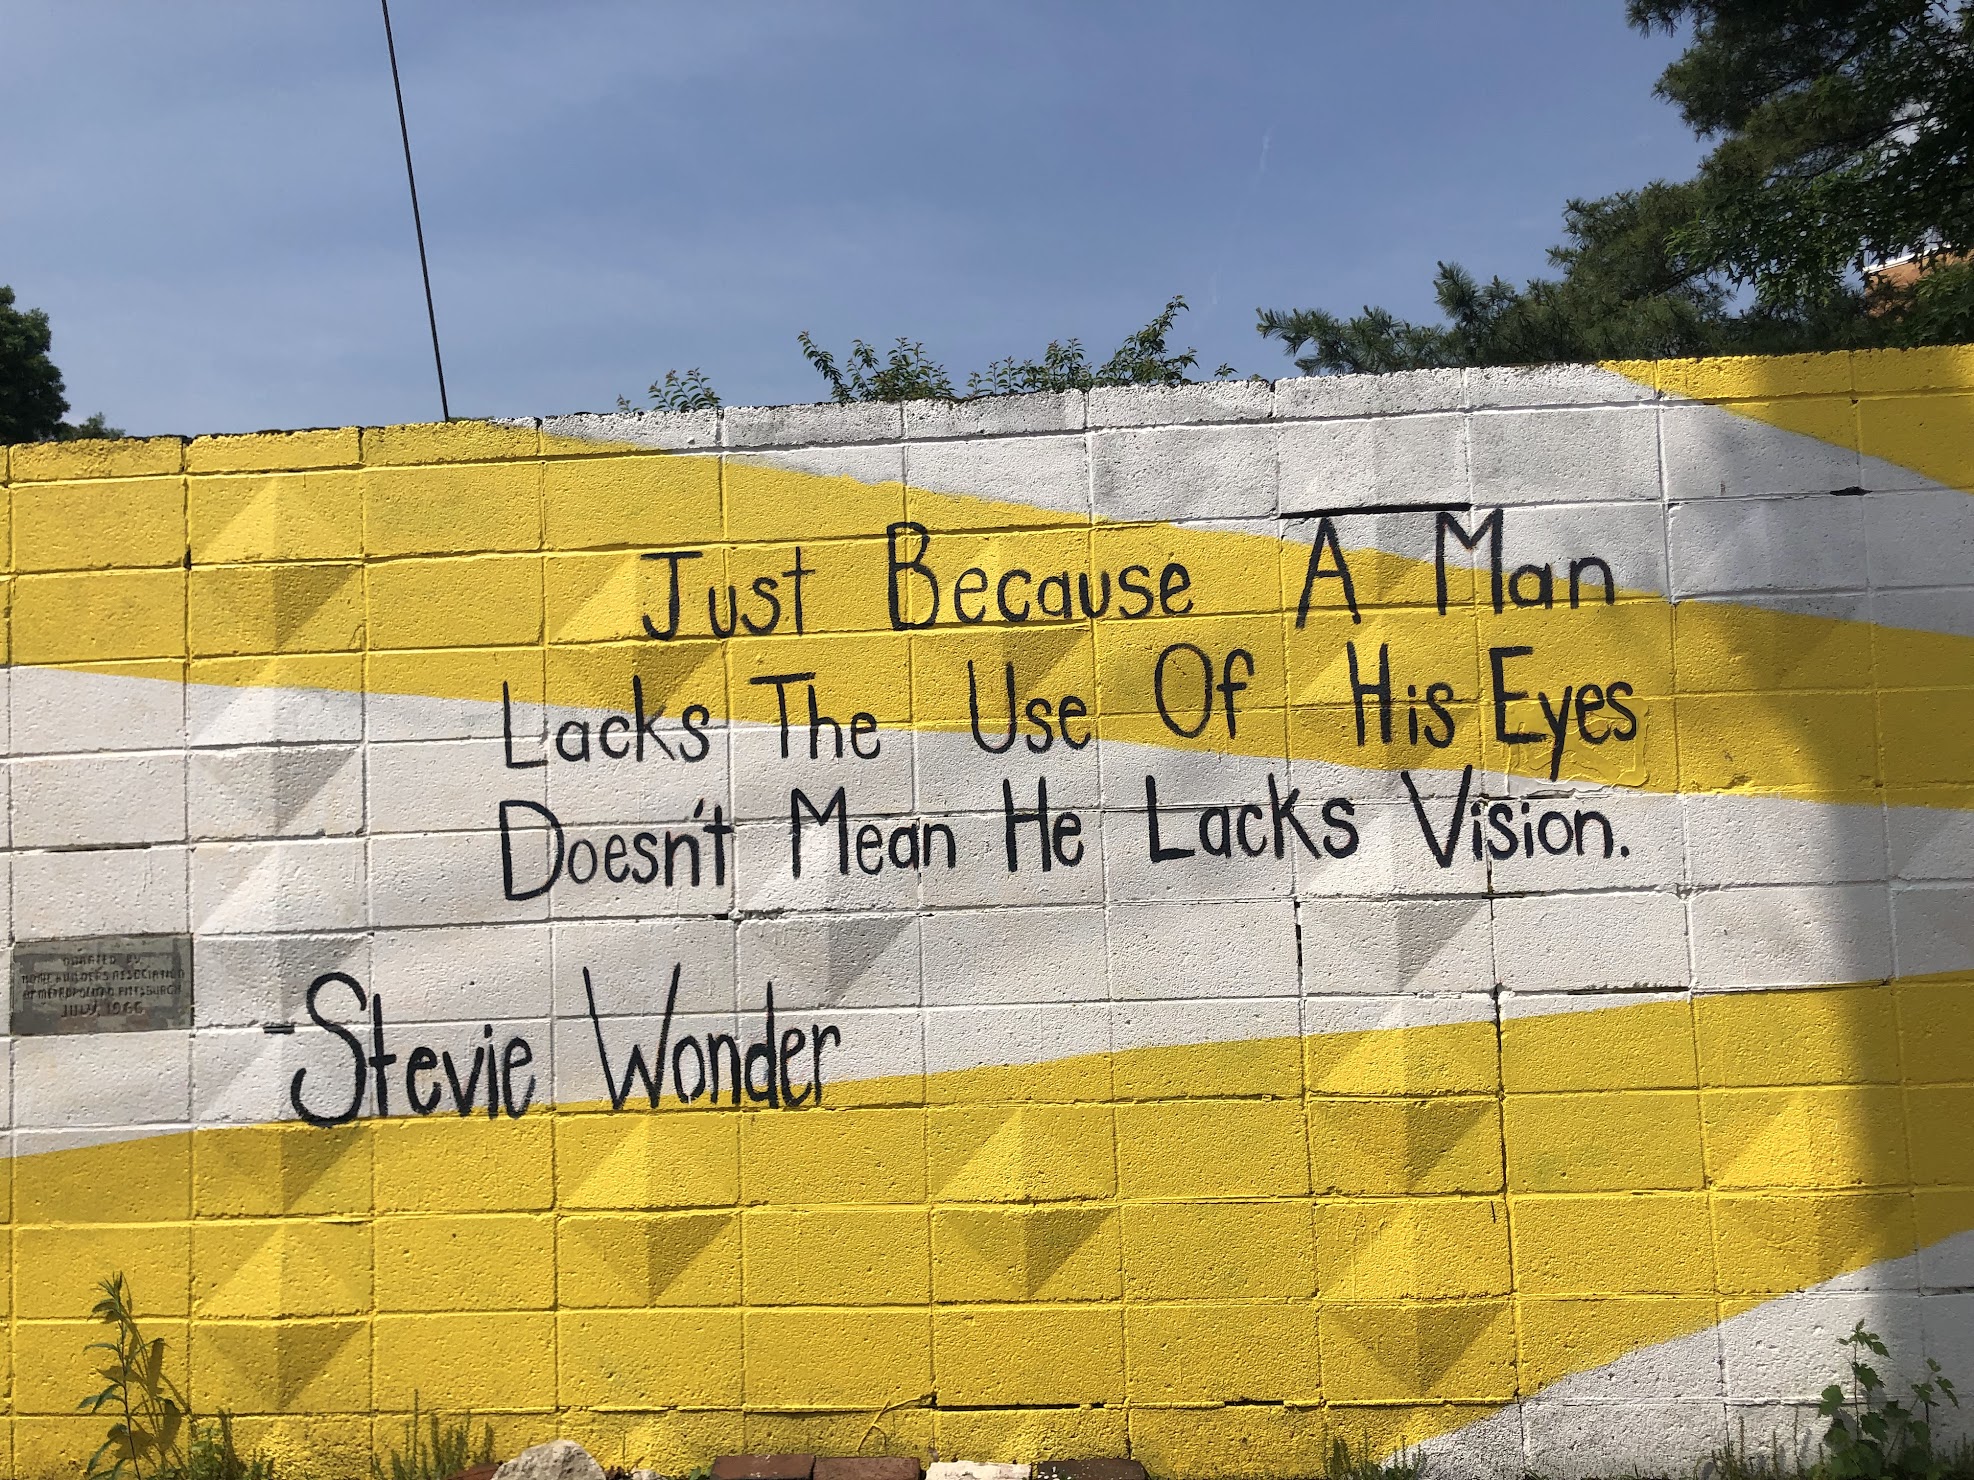 Just Because A Man
Lacks The Use Of His Eyes
Doesn't Mean He Lacks Vision.
-Stevie Wonder
DONATED BY
HOME BUILDERS ASSOCIATION
OF METROPOLITAN PITTSBURGH
JULY, 1966